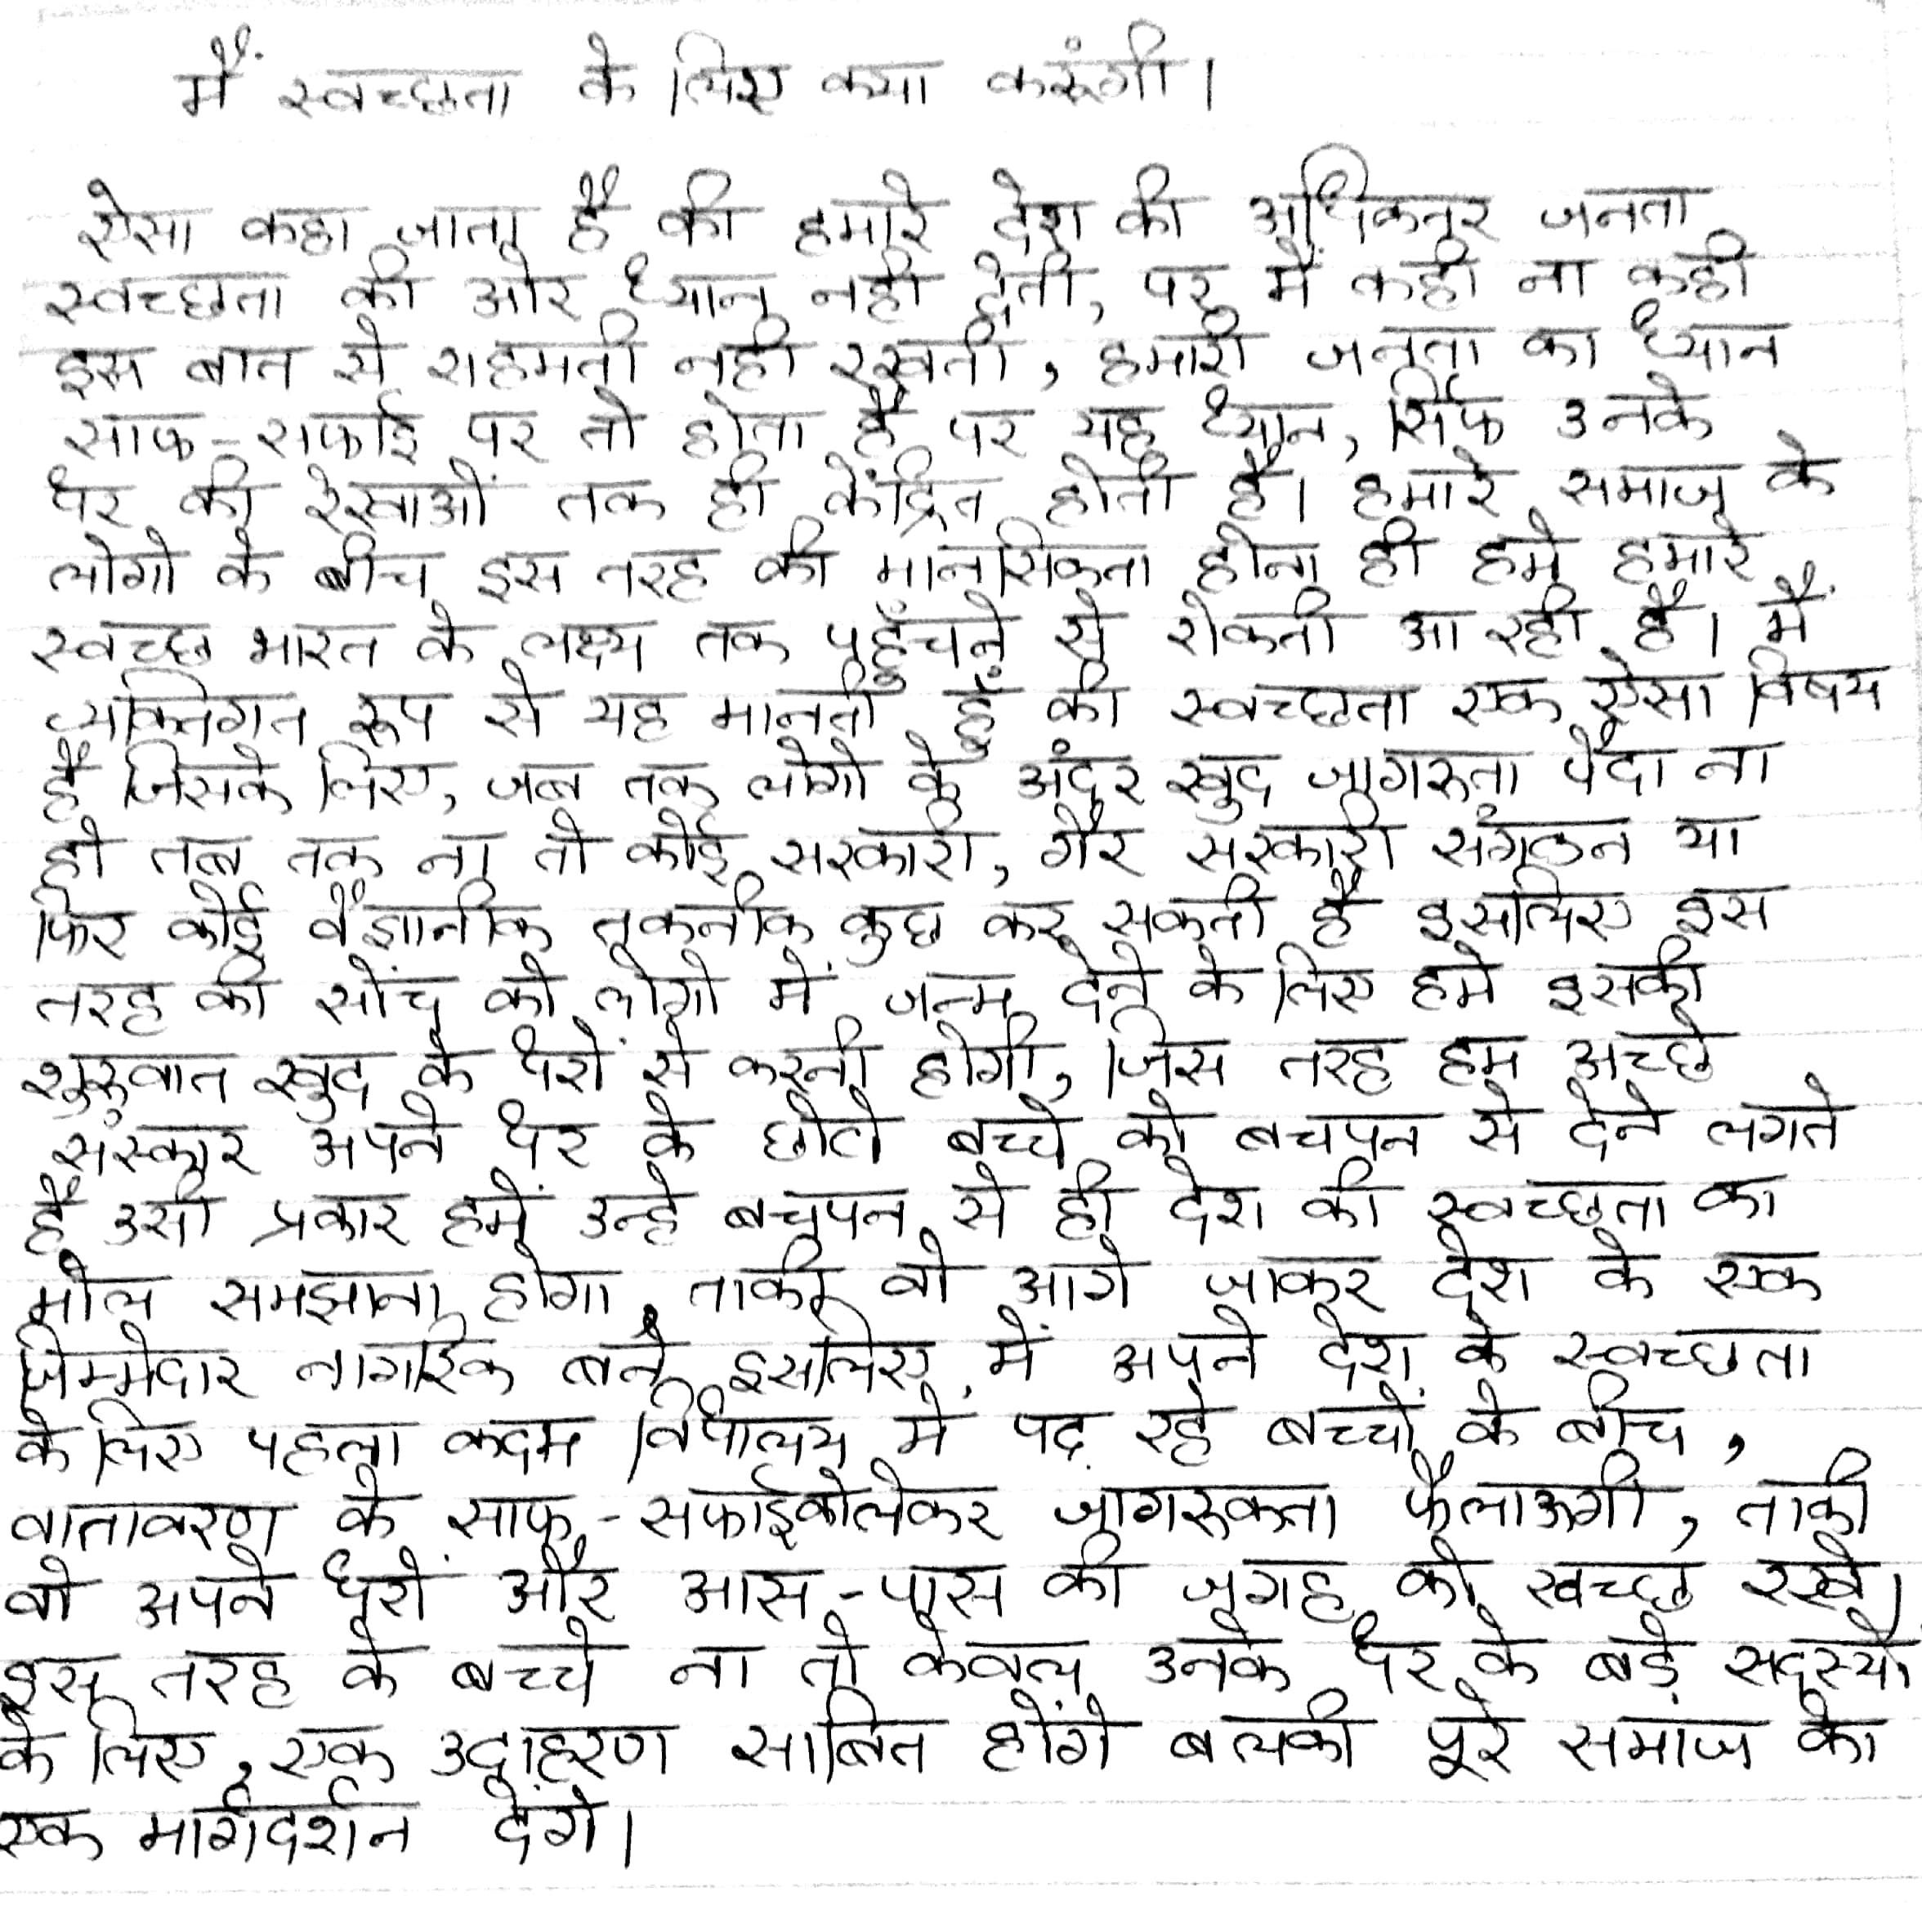 मैं स्वच्छता के लिए क्या करूंगी।
ऐसा कहा जाता है की हमारे देश की अधिकतर जनता
स्वच्छता की ओर ध्यान नही देती, पर मैं कही ना कही
इस बात से सहमती नही रखती, हमारी जनता का ध्यान
साफ-सफाई पर तो होता है पर यह ध्यान, सिर्फ उनके
घर की रेखाओं तक ही केंद्रित होती है। हमारे समाज के
लोगो के बीच इस तरह की मानसिकता होना ही हमे हमारे
स्वच्छ भारत के लक्ष्य तक पहुँचने से रोकती आ रही है। मैं
व्यक्तिगत रूप से यह मानती हूँ की स्वच्छता एक ऐसा विषय
है जिसके लिए, जब तक लोगो के अंदर खुद जागरुता पैदा ना
हो तब तक ना तो कोई सरकारी, गैर सरकारी संगठन या
फिर कोई वैज्ञानीक तकनीक कुछ कर सकती है इसलिए इस
तरह की सोंच को लोगो में जन्म देने के लिए हमे इसकी
शुरुवात खुद के घरों से करनी होगी, जिस तरह हम अच्छे
संस्कार अपने घर के छोटे बच्चे को बचपन से देने लगते
है उसी प्रकार हमें उन्हे बचपन से ही देश की स्वच्छता का
मोल समझाना होगा, ताकी वो आगे जाकर देश के एक
जिम्मेदार नागरिक बने इसलिए में अपने देश के स्वच्छता
के लिए पहला कदम विधालय मे पढ़ रहे बच्चों के बीच,
वातावरण के साफ-सफाईकोलेकर जागरुकता फैलाऊगी, ताकी
वो अपने घरों और आस-पास की जगह को स्वच्छ रखे।
इस तरह के बच्चे ना तो केवल उनके घर के बड़े सदस्यो
के लिए, एक उदाहरण साबित होंगे बलकी पूरे समाज को
एक मार्गदर्शन देंगे।